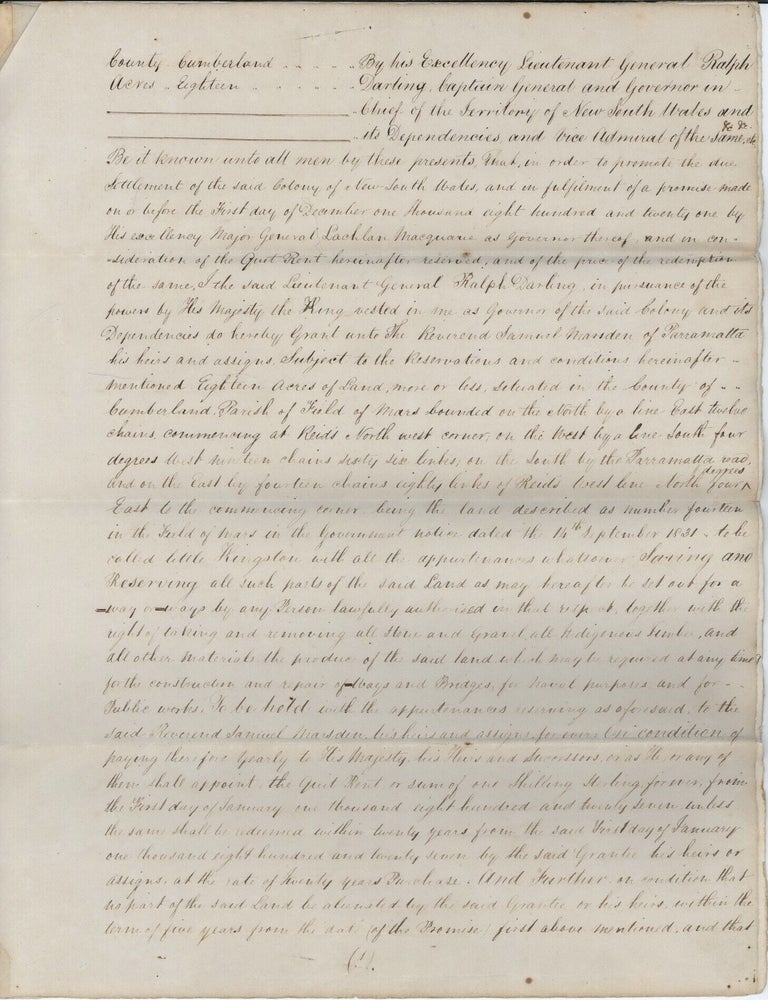 County Cumberland . . . . . By his Excellency Lieutenant General Ralph
Acres .. Eighteen . . . . . . Darling, Captain General and Governor in -
Chief of the Territory of New South Wales and
its Dependencies and Vice Admiral of the same, &c &c &c
Be it known unto all men by these presents, That, in order to promote the due
Settlement of the said Colony of New South Wales, and in fulfilment of a promise made
on or before the First day of December one thousand eight hundred and twenty one by
His excellency Major General Lachlan Macquarie as Governor thereof, and in con-
-sideration of the Quit Rent hereinafter reserved, and of the price of the redemption
of the same, I the said Lieutenant General Ralph Darling, in pursuance of the
powers by His Majesty the King vested in me as Governor of the said Colony and its
Dependencies do hereby Grant unto The Reverend Samuel Marsden of Parramatta
his heirs and assigns, Subject to the Reservations and conditions hereinafter -
mentioned Eighteen Acres of Land, more or less, situated in the County of - -
Cumberland, Parish of Field of Mars bounded on the North by a line East twelve
chains, commencing at Reid's North west corner, on the West by a line South four
degrees West nineteen chains sixty six links; on the South by the Parramatta road,
and on the East by fourteen chains eighty links of Reids West line North four degrees
East to the commencing corner being the land described as number fourteen
in the Field of Mars in the Government notice dated the 14th September 1831 - to be
called little Kingston with all the appurtenances whatsoever Saving and
Reserving all such parts of the said Land as may hereafter be set out for a
way or ways by any Person lawfully authorised in that respect, together with the
right of taking and removing all Stone and Gravel all Indigenous Timber, and
all other materials the produce of the said land which may be required at any time
for the construction and repair of Ways and Bridges, for Naval purposes and for -
Public works. To be held with the appurtenances reserving as aforesaid, to the
said Reverend Samuel Marsden, his heirs and assigns for ever On condition of
paying therefore yearly to His Majesty, his Heirs and Successors, or as He or any of
them shall appoint, the Quit Rent or sum of one Shilling Sterling, for ever, from
the First day of January one thousand eight hundred and twenty seven unless
the same shall be redeemed within twenty years from the said First day of January
one thousand eight hundred and twenty seven by the said Grantee his heirs or
assigns, at the rate of twenty years Purchase. And Further, on condition that
no part of the said Land be alienated by the said Grantee or his heirs, within the
term of five years from the date (of the Promise) first above mentioned, and that
(1).